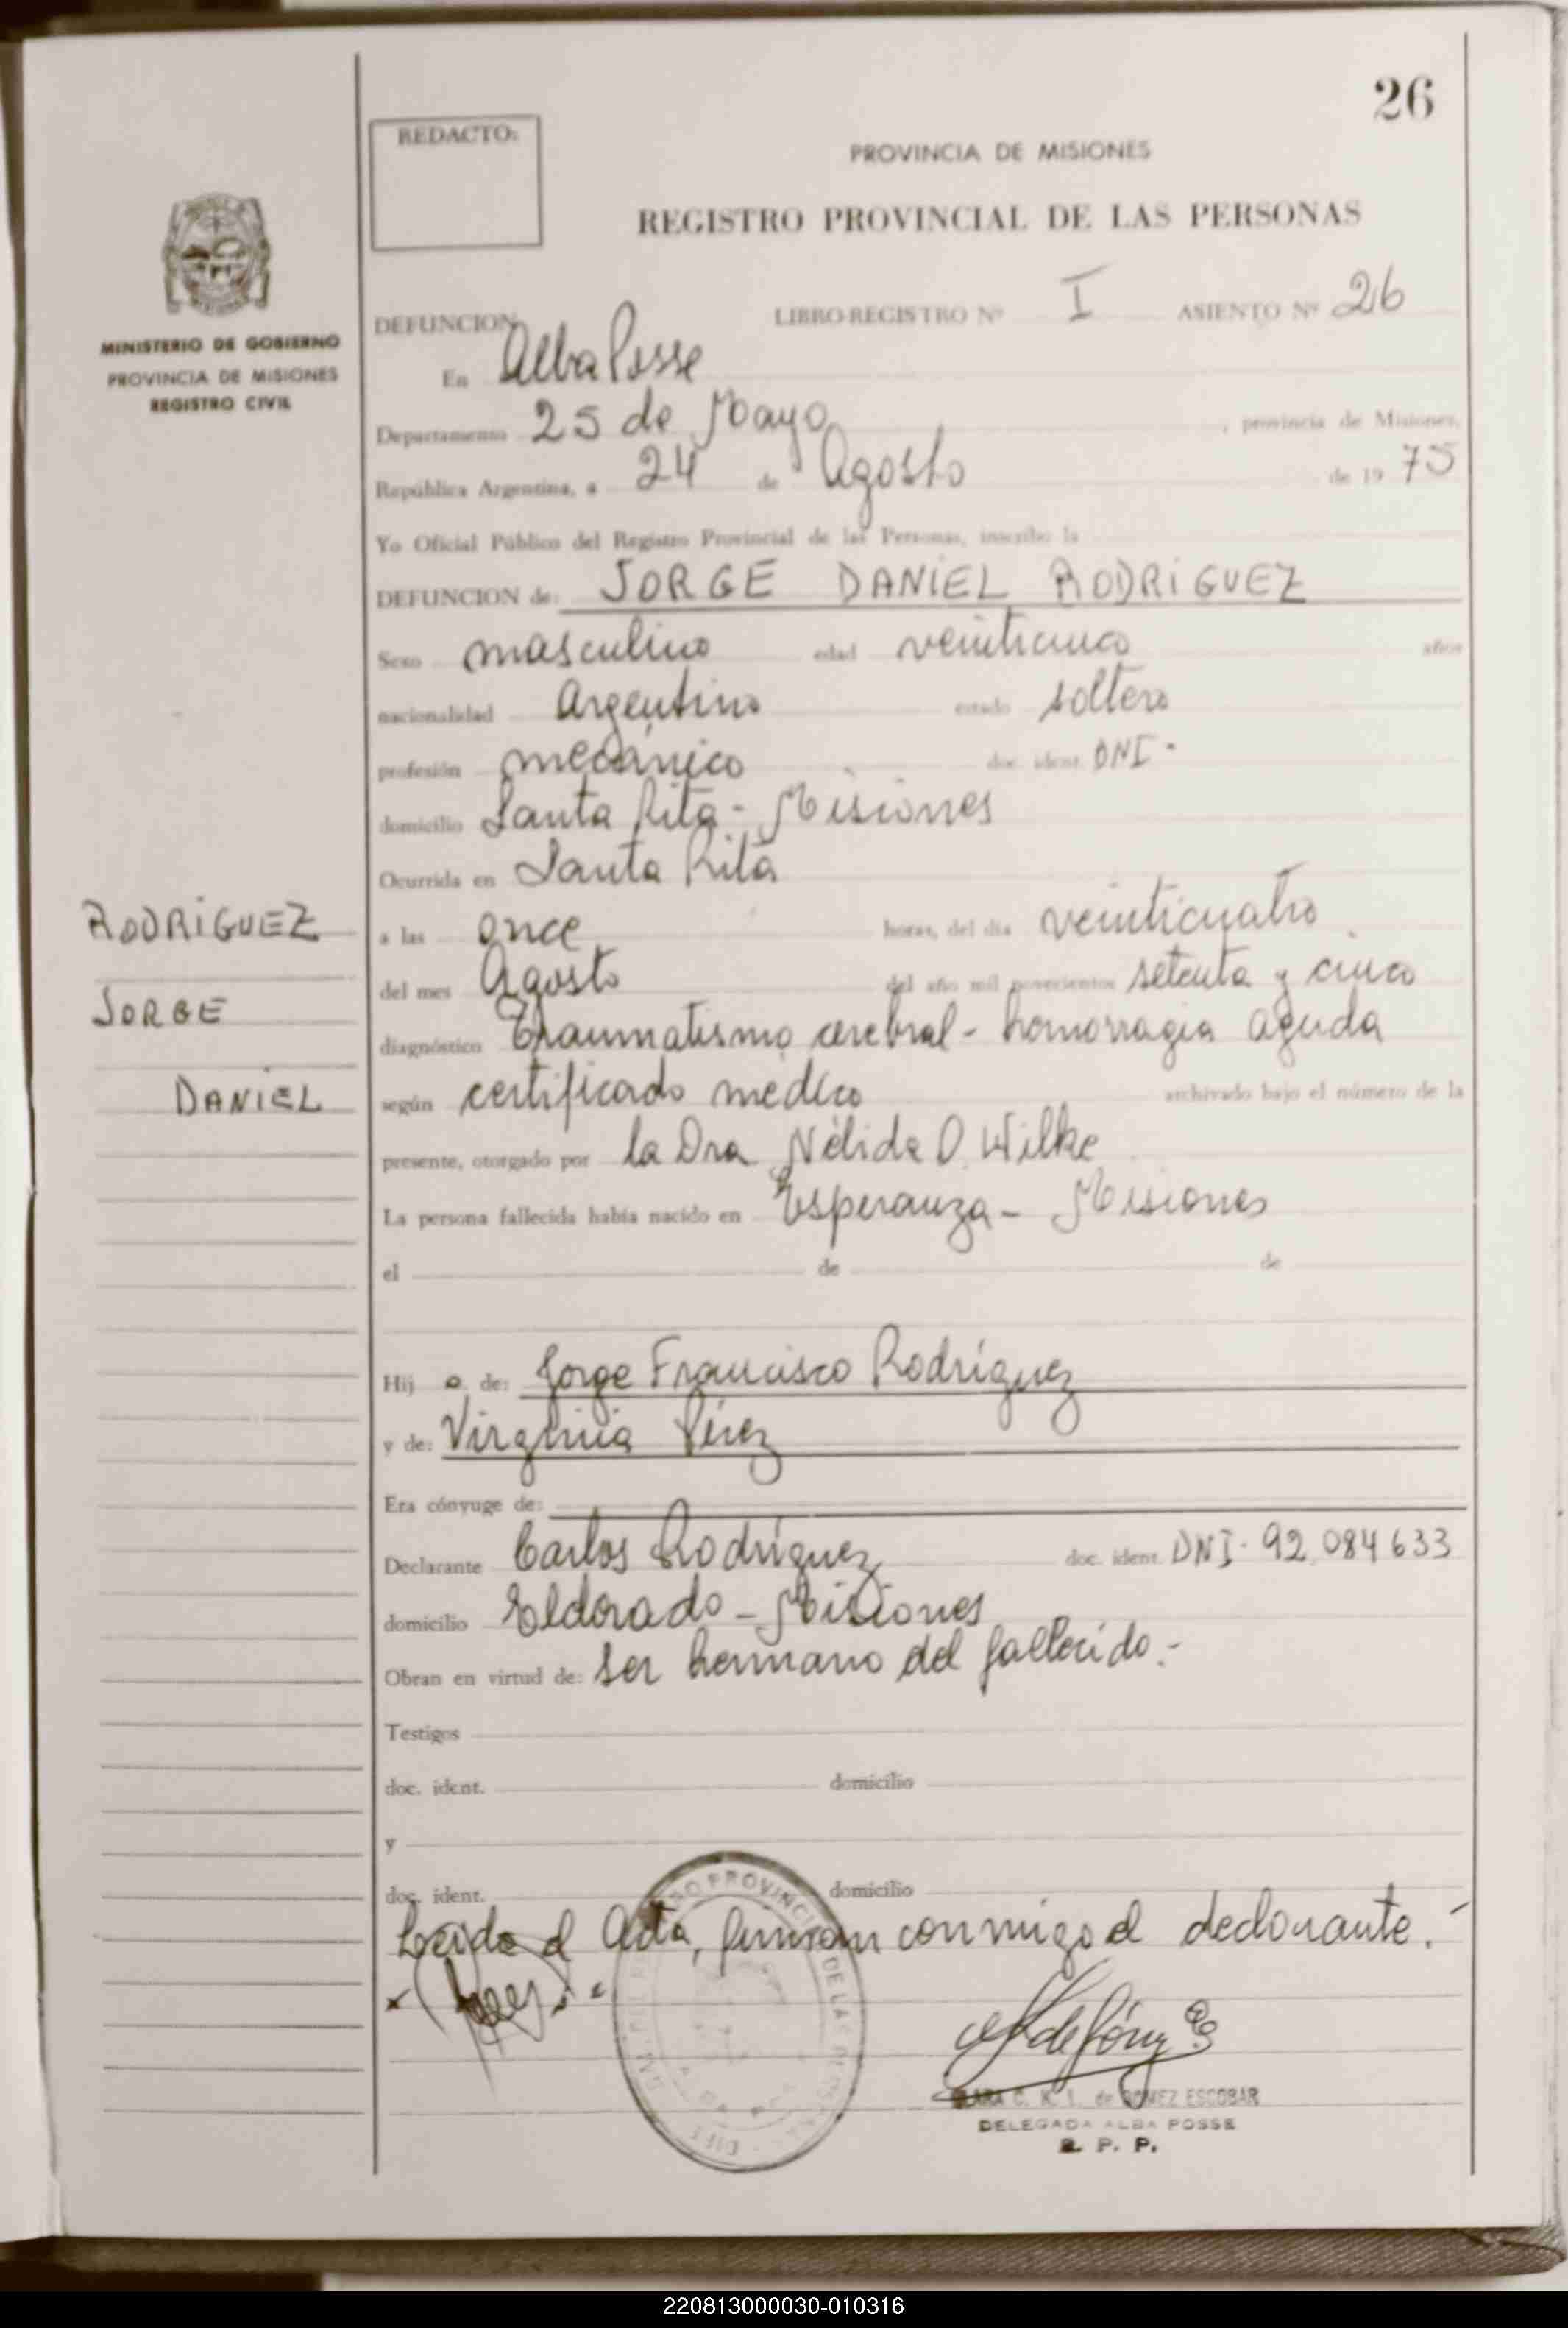 26
REDACTO:
PROVINCIA DE MISIONES
REGISTRO PROVINCIAL DE LAS PERSONAS
MINISTERIO DE GOBIERNO
PROVINCIA DE MISIONES
REGISTRO CIVIL
DEFUNCION LIBRO-REGISTRO Nº I ASIENTO Nº 26
En Alba Posse
Departamento 25 de Mayo, provincia de Misiones,
República Argentina, a 24 de Agosto de 19 75
Yo Oficial Público del Registro Provincial de las Personas, inscribo la
DEFUNCION de: JORGE DANIEL RODRIGUEZ
Sexo masculino edad veinticinco años
nacionalidad Argentino estado soltero
profesión mecánico doc. ident. DNI -
domicilio Santa Rita - Misiones
Ocurrida en Santa Rita
RODRIGUEZ
JORGE
DANIEL
a las once horas, del día veinticuatro
del mes Agosto del año mil novecientos setenta y cinco
diagnóstico Traumatismo cerebral - hemorragia aguda
según certificado medico archivado bajo el número de la
presente, otorgado por la Dra Nélida O. Wilke
La persona fallecida había nacido en Esperanza - Misiones
el de de
Hij o de: Jorge Francisco Rodríguez
y de: Virginia Pérez
Era cónyuge de:
Declarante Carlos Rodríguez doc. ident. DNI - 92.084633
domicilio Eldorado - Misiones
Obran en virtud de: ser hermano del fallecido.-
Testigos
doc. ident. domicilio
y
doc. ident. domicilio
Leida el Acta, firman conmigo el declarante.-
PROVINCIAL DE LAS
DE GOMEZ ESCOBAR
DELEGADA ALBA POSSE
R. P. P.
220813000030-010316